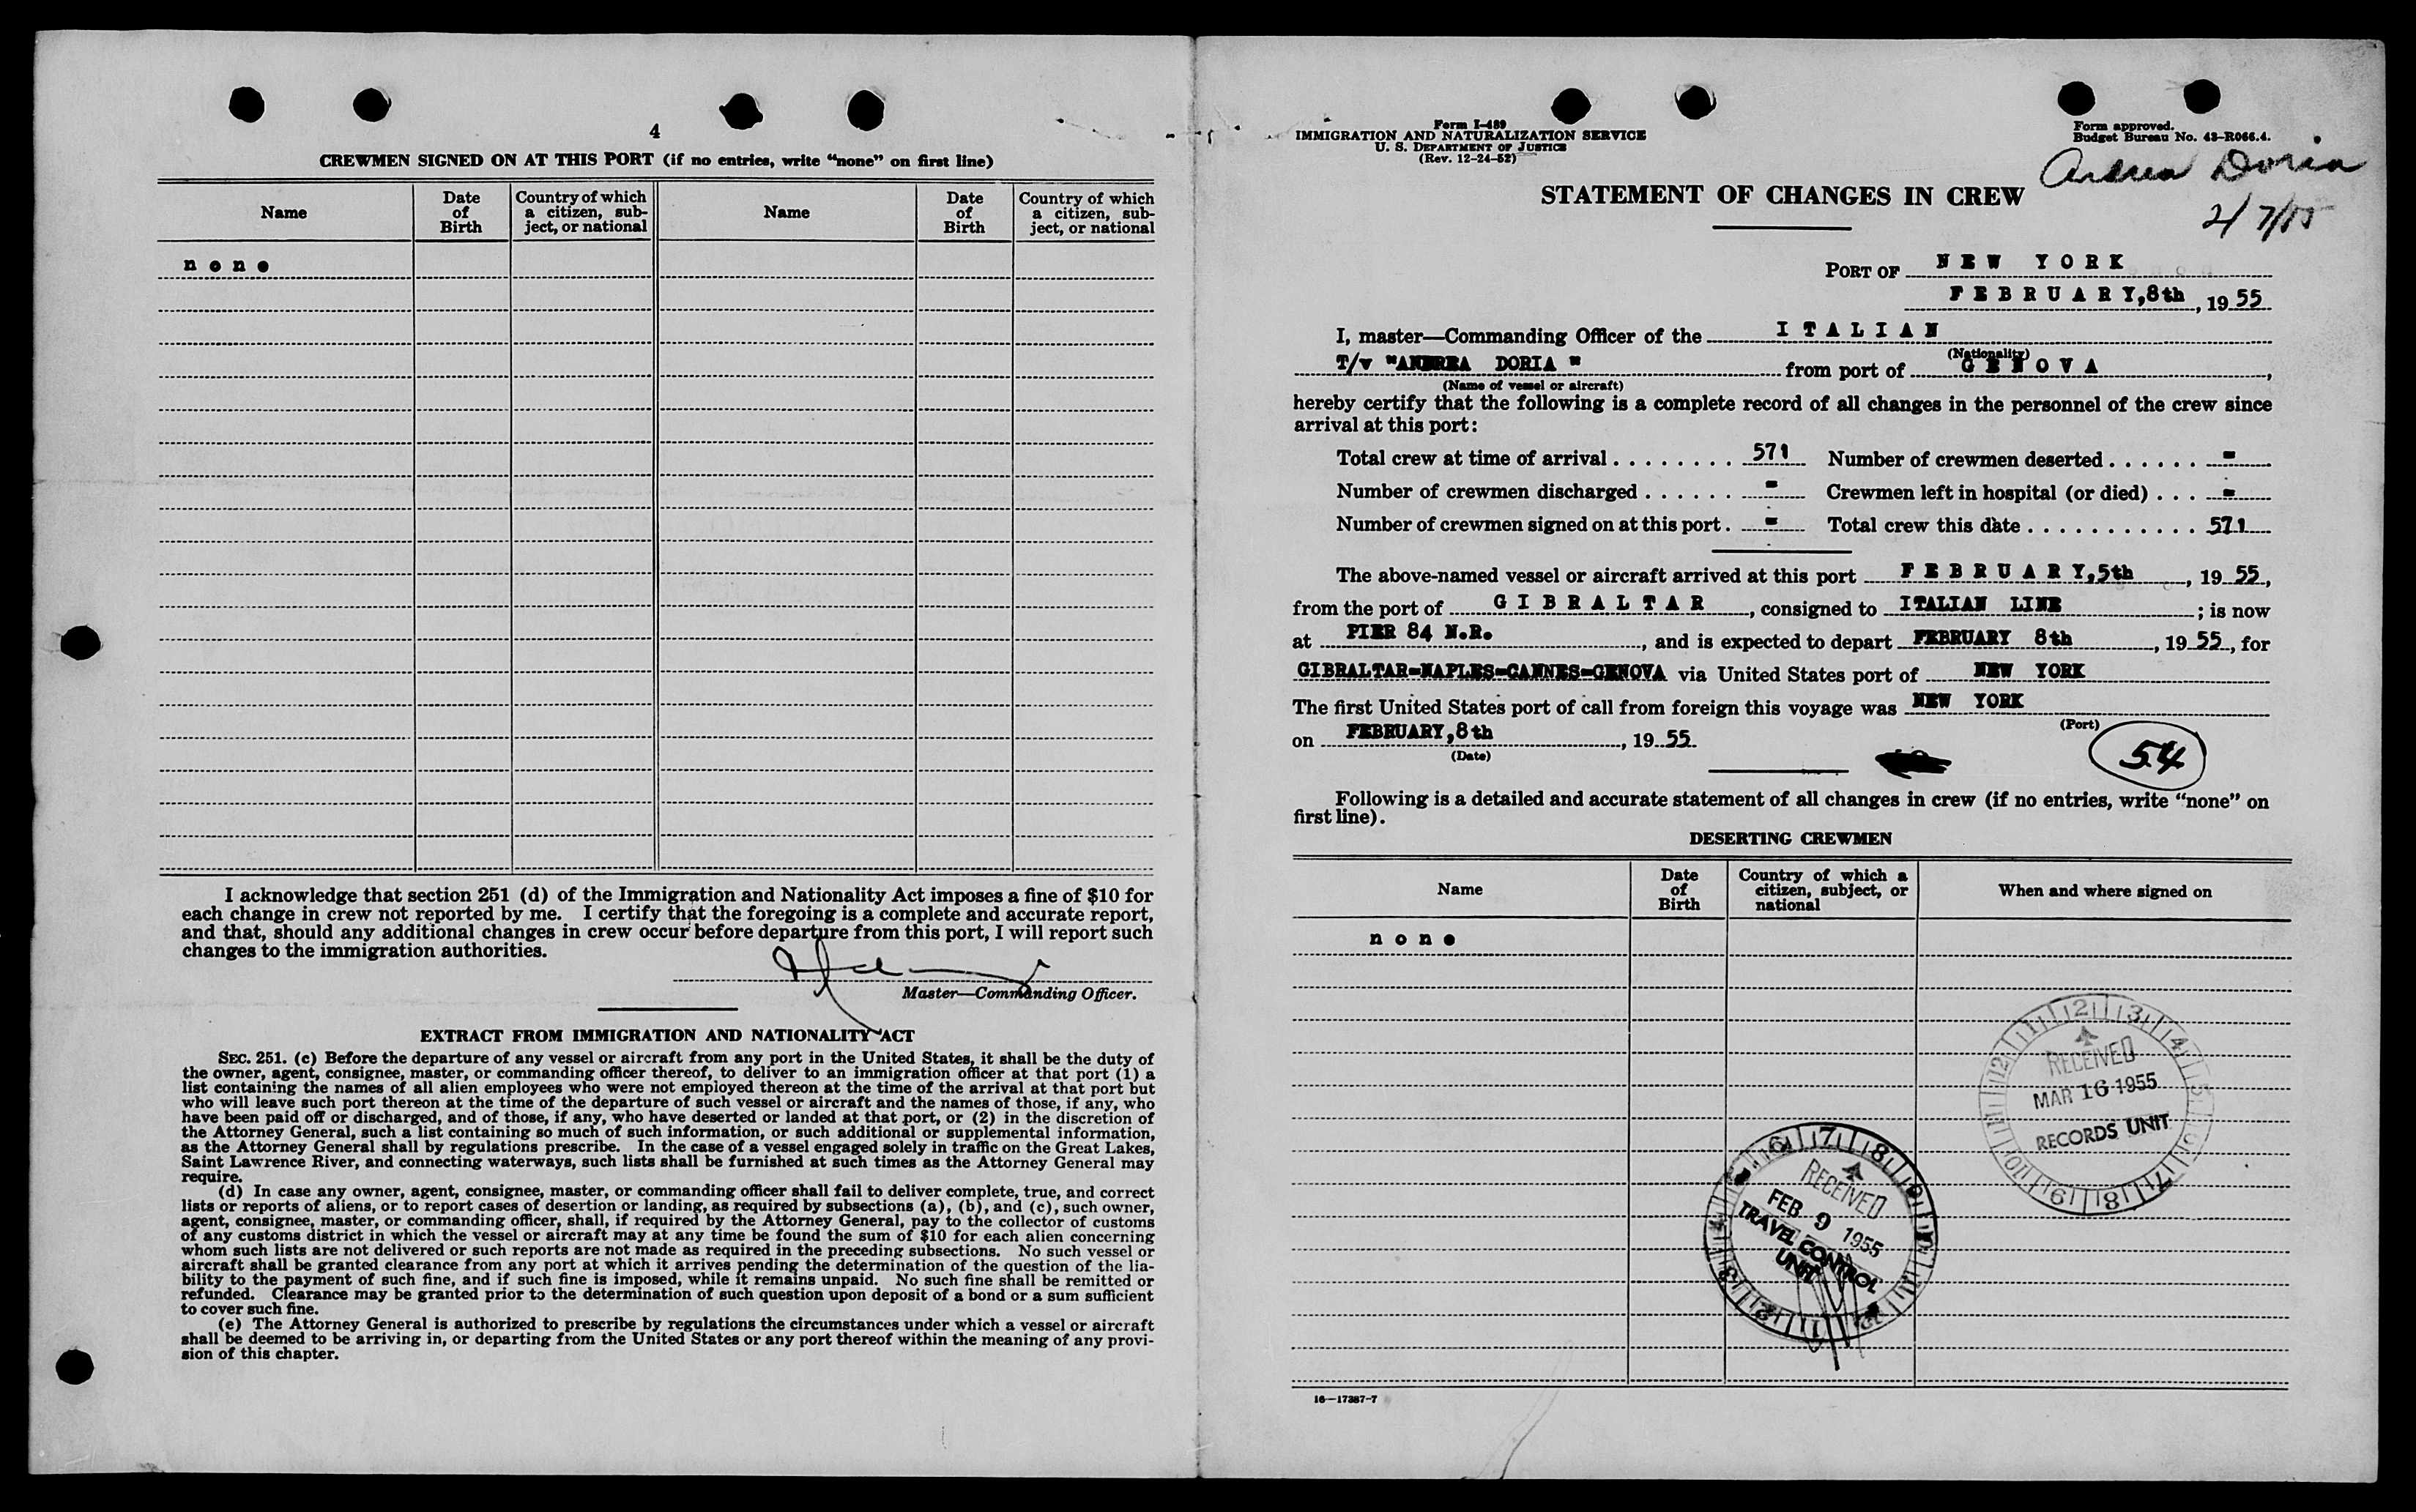 4
CREWMEN SIGNED ON AT THIS PORT (if no entries, write “none” on first line)
Name
Date of Birth
Country of which a citizen, sub-ject, or national
Name
Date of Birth
Country of which a citizen, sub-ject, or national
n o n e
I acknowledge that section 251 (d) of the Immigration and Nationality Act imposes a fine of $10 for
each change in crew not reported by me. I certify that the foregoing is a complete and accurate report,
and that, should any additional changes in crew occur before departure from this port, I will report such
changes to the immigration authorities.
Master—Commanding Officer.
EXTRACT FROM IMMIGRATION AND NATIONALITY ACT
SEC. 251. (c) Before the departure of any vessel or aircraft from any port in the United States, it shall be the duty of
the owner, agent, consignee, master, or commanding officer thereof, to deliver to an immigration officer at that port (1) a
list containing the names of all alien employees who were not employed thereon at the time of the arrival at that port but
who will leave such port thereon at the time of the departure of such vessel or aircraft and the names of those, if any, who
have been paid off or discharged, and of those, if any, who have deserted or landed at that port, or (2) in the discretion of
the Attorney General, such a list containing so much of such information, or such additional or supplemental information,
as the Attorney General shall by regulations prescribe. In the case of a vessel engaged solely in traffic on the Great Lakes,
Saint Lawrence River, and connecting waterways, such lists shall be furnished at such times as the Attorney General may
require.
(d) In case any owner, agent, consignee, master, or commanding officer shall fail to deliver complete, true, and correct
lists or reports of aliens, or to report cases of desertion or landing, as required by subsections (a), (b), and (c), such owner,
agent, consignee, master, or commanding officer, shall, if required by the Attorney General, pay to the collector of customs
of any customs district in which the vessel or aircraft may at any time be found the sum of $10 for each alien concerning
whom such lists are not delivered or such reports are not made as required in the preceding subsections. No such vessel or
aircraft shall be granted clearance from any port at which it arrives pending the determination of the question of the lia-
bility to the payment of such fine, and if such fine is imposed, while it remains unpaid. No such fine shall be remitted or
refunded. Clearance may be granted prior to the determination of such question upon deposit of a bond or a sum sufficient
to cover such fine.
(e) The Attorney General is authorized to prescribe by regulations the circumstances under which a vessel or aircraft
shall be deemed to be arriving in, or departing from the United States or any port thereof within the meaning of any provi-
sion of this chapter.
Form I-489
IMMIGRATION AND NATURALIZATION SERVICE
U. S. DEPARTMENT OF JUSTICE
(Rev. 12-24-52)
Form approved.
Budget Bureau No. 43-R066.4.
Andrea Doria
2/7/55
STATEMENT OF CHANGES IN CREW
PORT OF N E W Y O R K
F E B R U A R Y,8th, 19 55
I, master—Commanding Officer of the I T A L I A N
(Nationality)
T/v "ANDREA DORIA " from port of G E N O V A,
(Name of vessel or aircraft)
hereby certify that the following is a complete record of all changes in the personnel of the crew since
arrival at this port:
Total crew at time of arrival . . . . . . . . 571 Number of crewmen deserted . . . . . . -
Number of crewmen discharged . . . . . . - Crewmen left in hospital (or died) . . . -
Number of crewmen signed on at this port . - Total crew this date . . . . . . . . . . . 571
The above-named vessel or aircraft arrived at this port F E B R U A R Y,5th, 19 55,
from the port of G I B R A L T A R, consigned to ITALIAN LINE; is now
at PIER 84 N.R., and is expected to depart FEBRUARY 8th, 19 55, for
GIBRALTAR-NAPLES-CANNES-GENOVA via United States port of NEW YORK
The first United States port of call from foreign this voyage was NEW YORK
(Port)
on FEBRUARY,8th, 19 55.
(Date)
54
Following is a detailed and accurate statement of all changes in crew (if no entries, write “none” on
first line).
DESERTING CREWMEN
Name
Date of Birth
Country of which a citizen, subject, or national
When and where signed on
n o n e
RECEIVED
MAR 16 1955
RECORDS UNIT
RECEIVED
FEB 9 1955
TRAVEL CONTROL
UNIT
16—17387-7